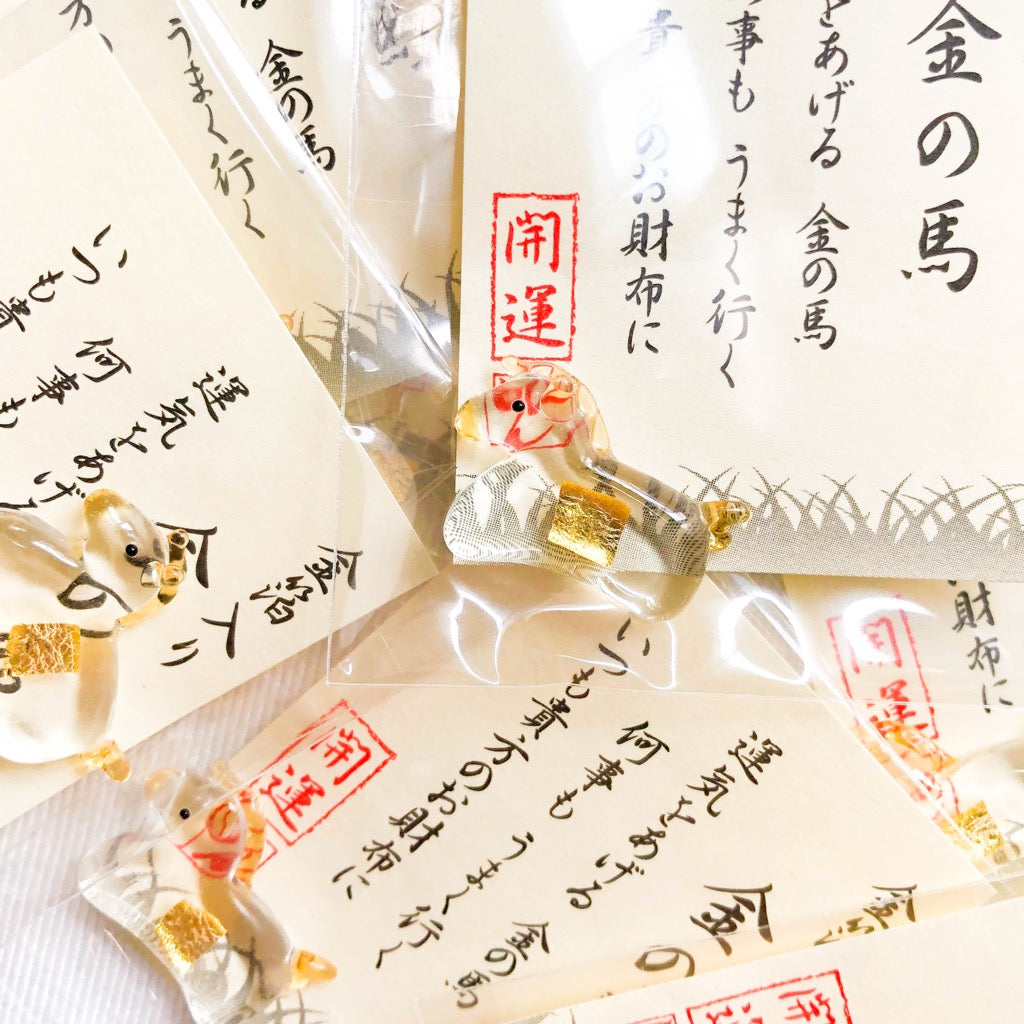 金の馬
をあげる 金の馬
事も うまく行く
貴方のお財布に
開運
うまく行く
金の馬
いつも貴
何事も
運気をあげ
金
金箔入り
開運
いつも貴方のお財布に
何事も うまく行く
運気をあげる 金の馬
金の
金箔
財布に
開運
開運